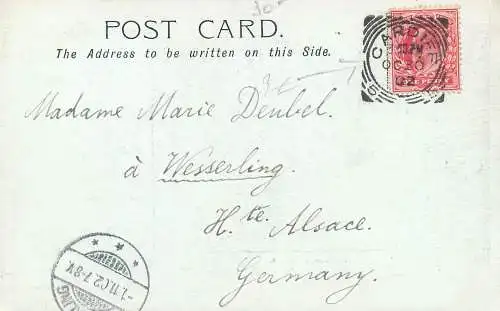 POST CARD.
The Address to be written on this Side.
CARDIFF
OC 30
02
Madame Marie Deubel.
à Wesserling.
Hte. Alsace.
Germany.
-1.11.02.7-8V.